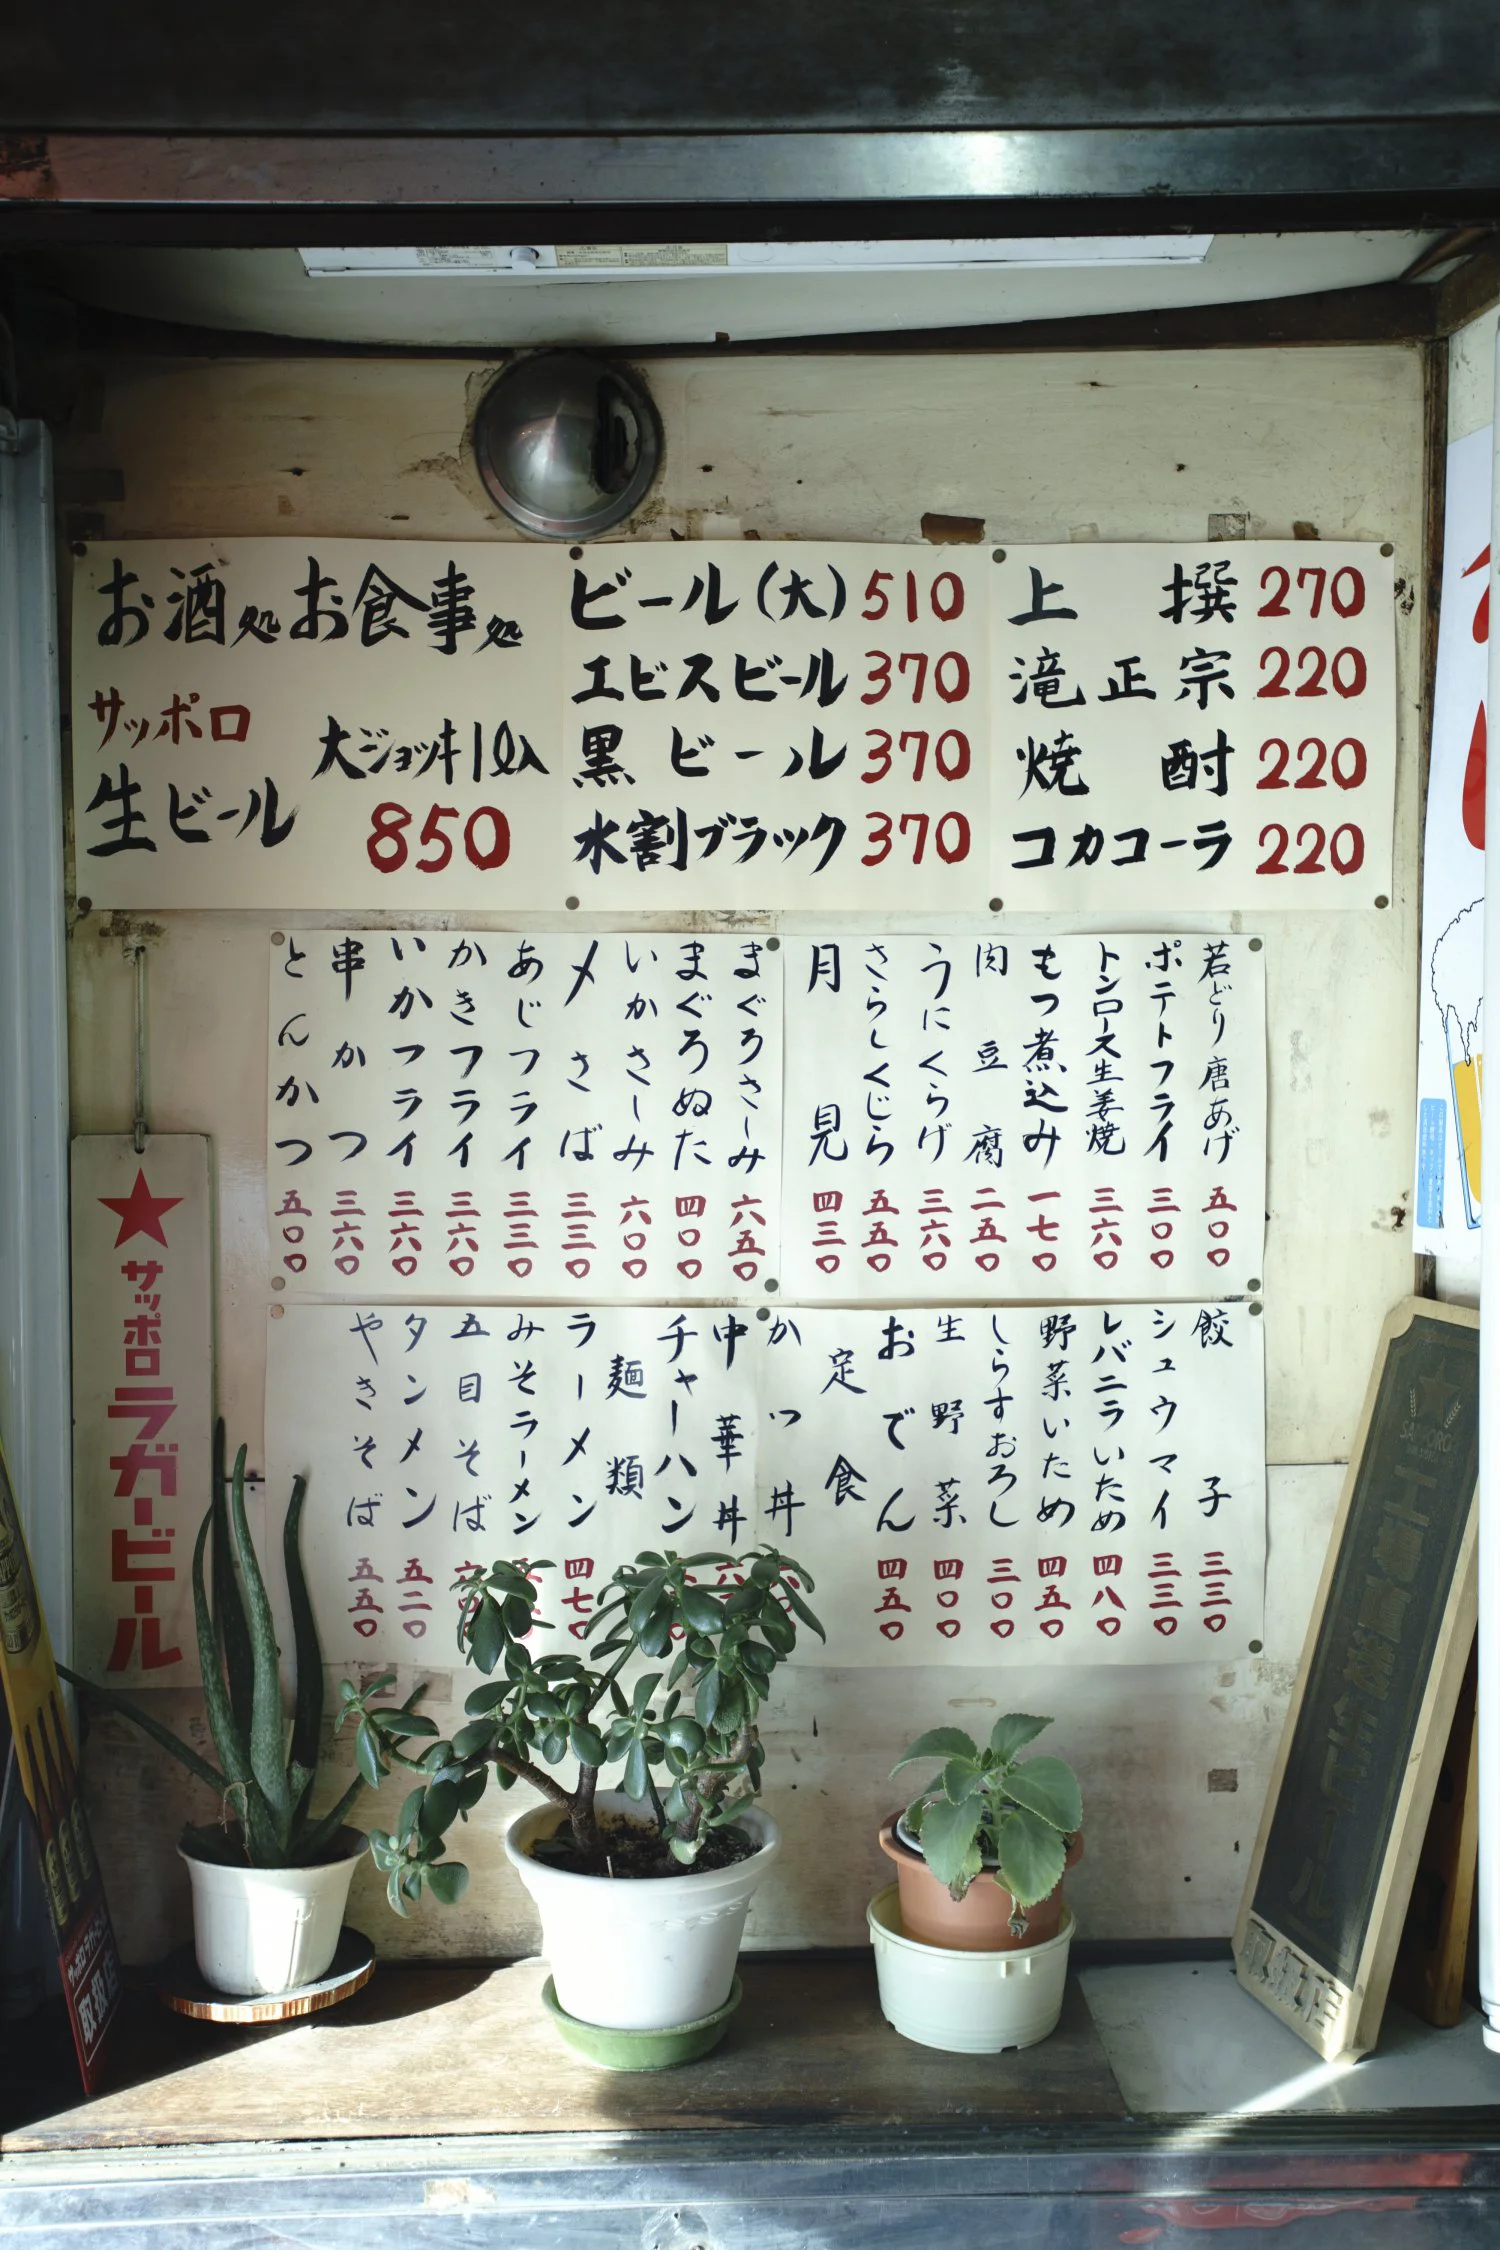 お酒処お食事処
サッポロ
生ビール
大ジョッキ1ℓ入
850
ビール(大) 510
エビスビール 370
黒ビール 370
水割ブラック 370
上撰 270
滝正宗 220
焼酎 220
コカコーラ 220
若どり唐あげ 五〇〇
ポテトフライ 三〇〇
トンロース生姜焼 三六〇
もつ煮込み 一七〇
肉豆腐 二五〇
うにくらげ 三六〇
さらしくじら 五五〇
月見 四三〇
まぐろさしみ 六五〇
まぐろぬた 四〇〇
いかさしみ 六〇〇
〆さば 三三〇
あじフライ 三三〇
かきフライ 三六〇
いかフライ 三六〇
串かつ 三六〇
とんかつ 五〇〇
餃子 三三〇
シュウマイ 三三〇
レバニラいため 四八〇
野菜いため 四五〇
しらすおろし 三〇〇
生野菜 四〇〇
おでん 四五〇
定食
かつ丼
中華丼
チャーハン
麺類
ラーメン 四七〇
みそラーメン
五目そば
タンメン 五二〇
やきそば 五五〇
★サッポロラガービール
取扱店
取扱店